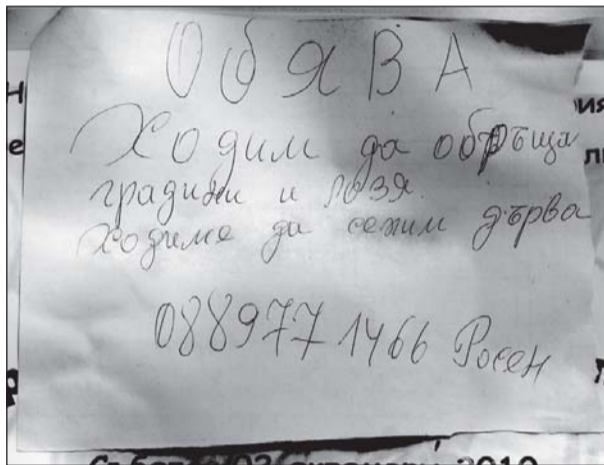 ОбЯВА
Ходим да обръща
градини и лозя.
Ходиме да сечим дърва
0889771466 Росен
02 октомври 2010